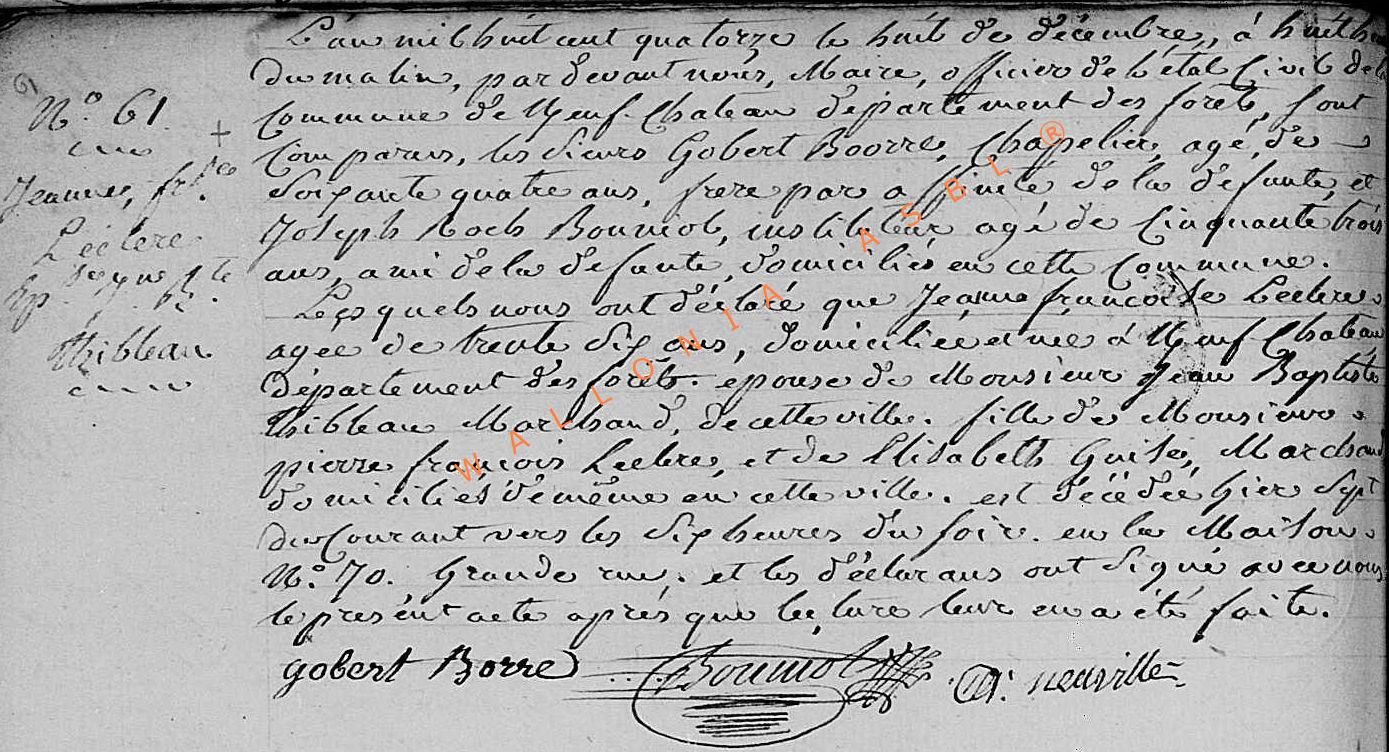 L'an mil huit cent quatorze le huit de décembre, à huit h
du matin, par devant nous, Maire, officier de l'état Civil de la
N.º 61.
Commune de Neuf-Chateau département des forêts, sont
Comparus, les Sieurs Gobert Boorre, Chapelier, agé, de
Jeanne, fr.se
Soixante quatre ans, frere par affinité de la défunte, et
Leclere
Joseph Roch Bouniol, instituteur agé de Cinquante trois
ans, ami de la défunte, domiciliés en cette Commune.
Lesquels nous ont déclaré que Jeanne françoise Leclere
Thibleau
agée de trente Six ans, domiciliée et née à Neuf-Chateau
département des forêts. épouse de Monsieur Jean Baptiste
thibleau Marchand, de cette ville. fille de Monsieur
pierre françois Leclere, et de Elisabeth Guise, Marchand
domiciliés de même en cette ville. est décédée hier Sept
du Courant vers les Six heures du soir. en la Maison
N.º 70. Grande rue. et les déclarans ont Signé avec nous
le présent acte après que lecture leur en a été faite.
gobert Borre Bouniol neuville
WALLONIA ASBL ®